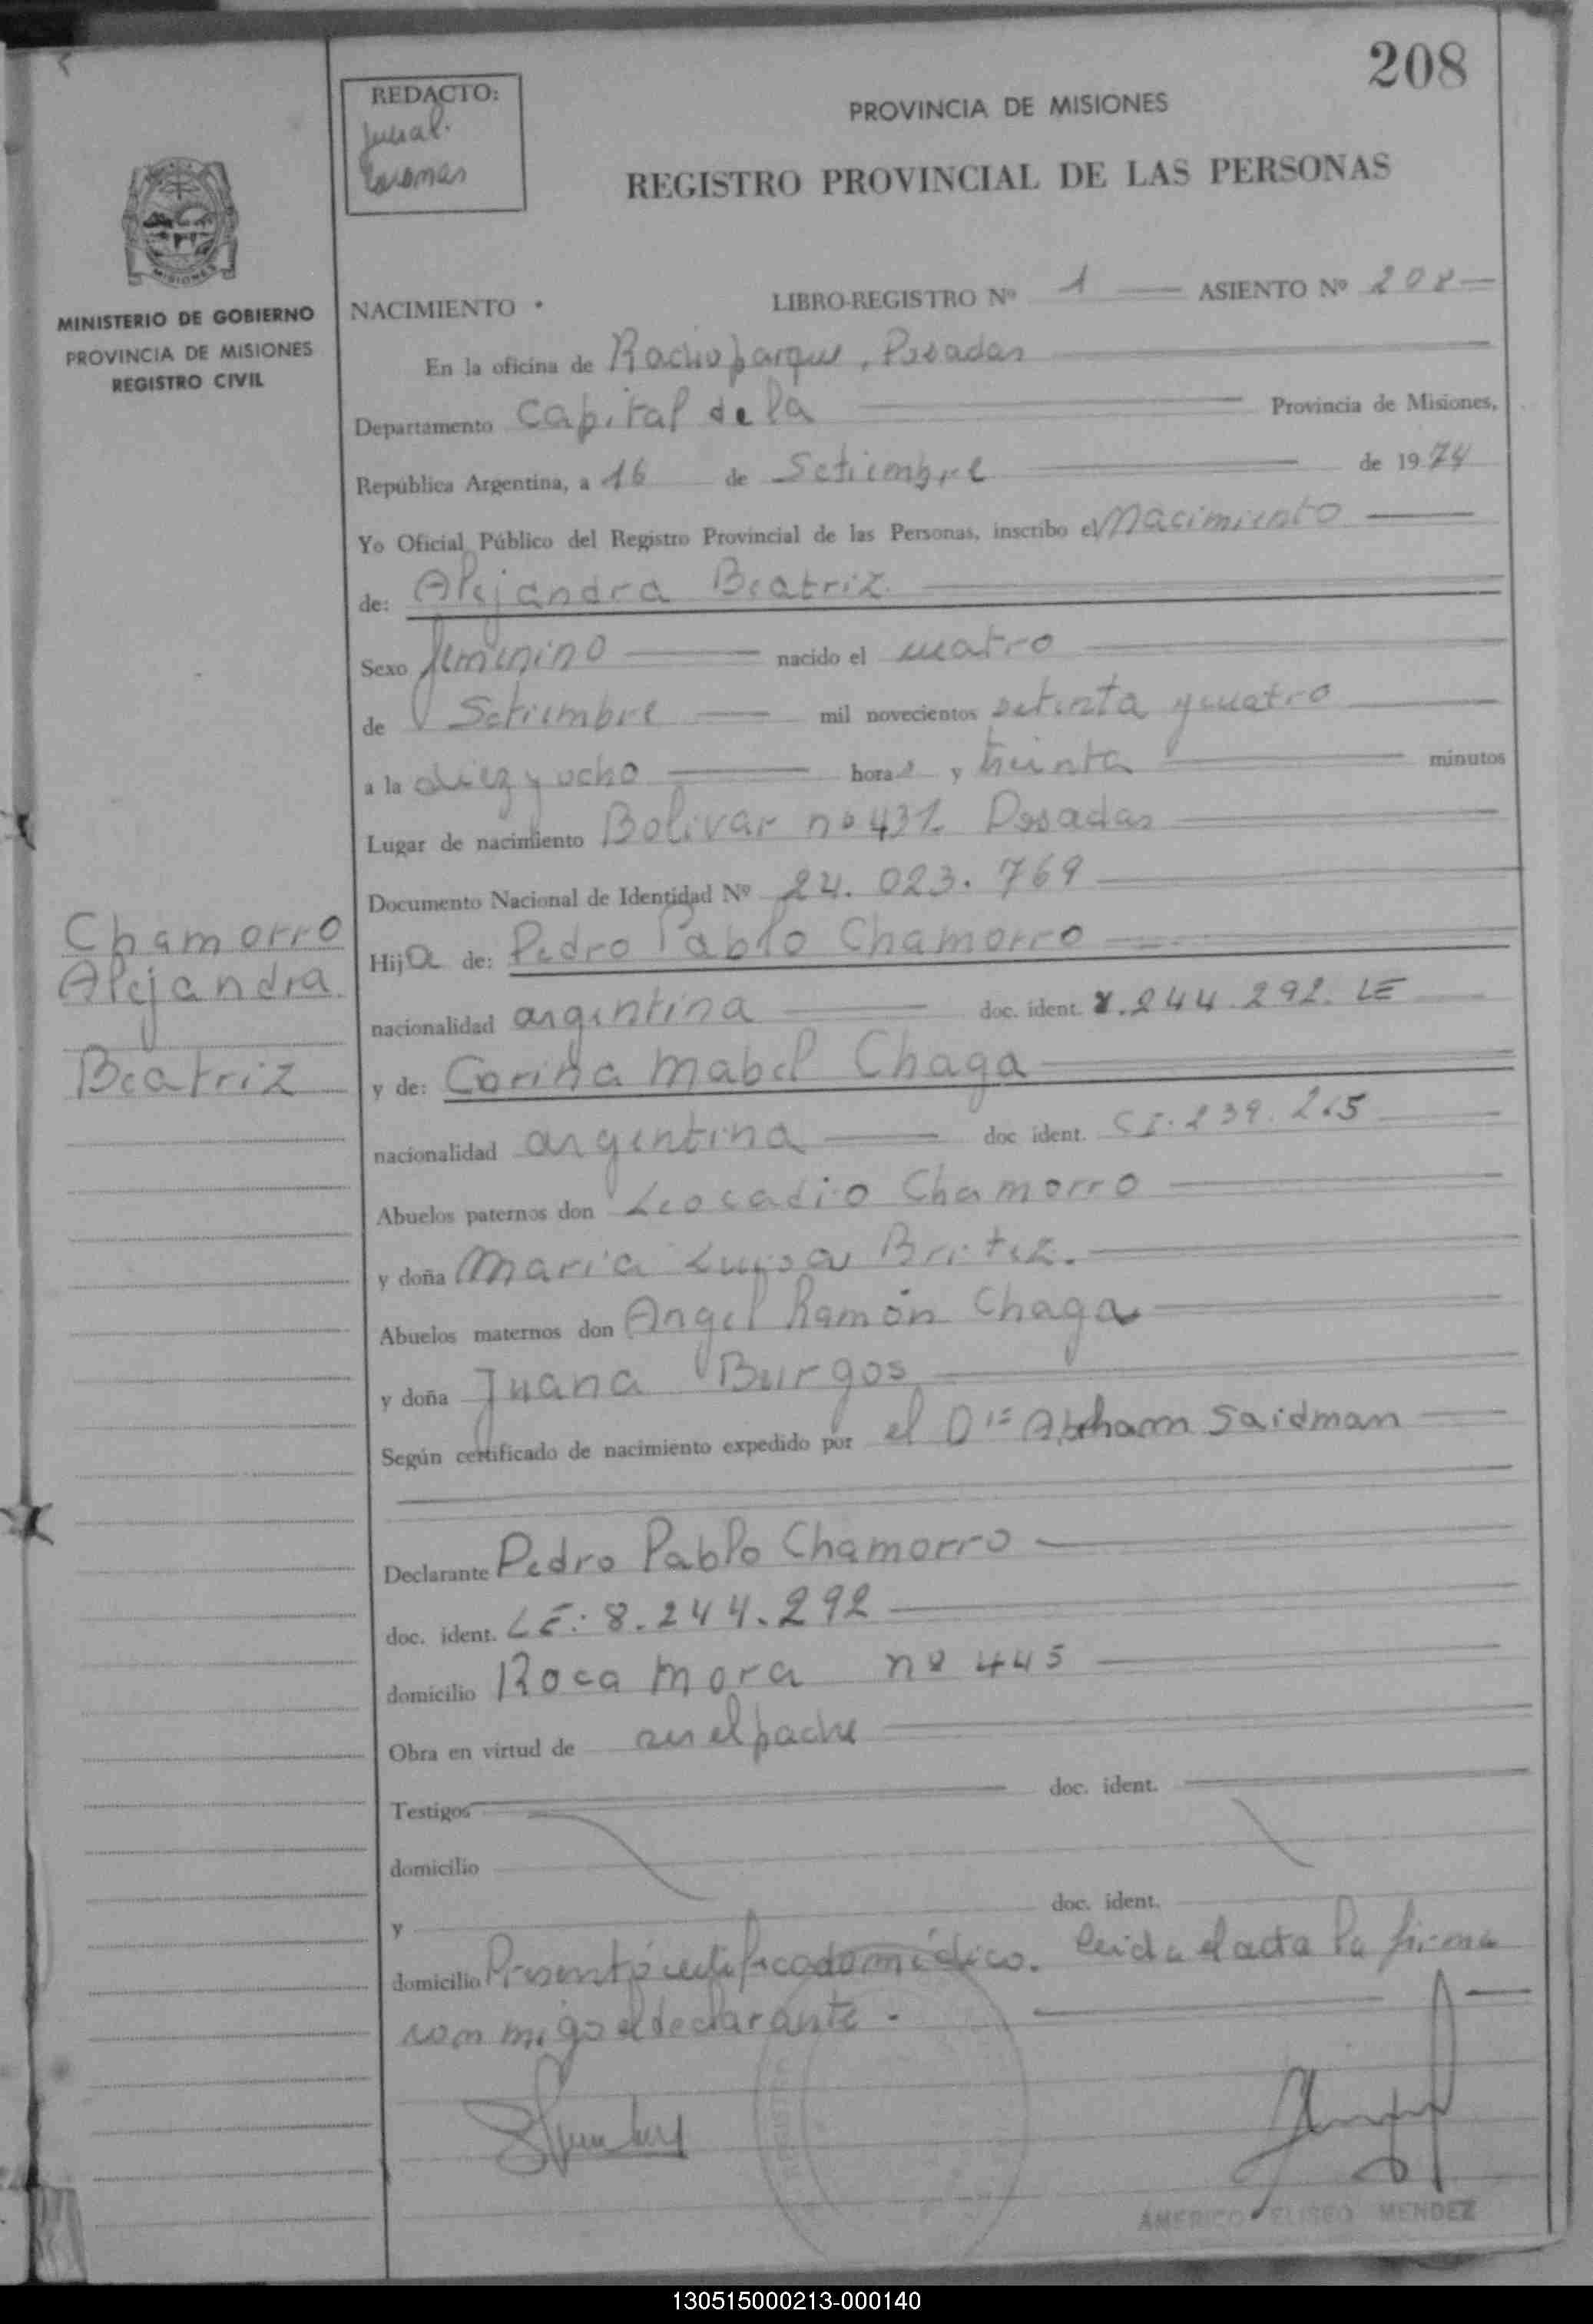 208
REDACTO:
PROVINCIA DE MISIONES
REGISTRO PROVINCIAL DE LAS PERSONAS
MISIONES
MINISTERIO DE GOBIERNO
PROVINCIA DE MISIONES
REGISTRO CIVIL
NACIMIENTO LIBRO-REGISTRO Nº 1 ASIENTO Nº 208
En la oficina de Posadas
Departamento Capital de la Provincia de Misiones,
República Argentina, a 16 de Setiembre de 1974
Yo Oficial Público del Registro Provincial de las Personas, inscribo el Nacimiento
de: Alejandra Beatriz
Sexo femenino nacido el cuatro
de Setiembre mil novecientos setenta y cuatro
a la diez y ocho horas y treinta minutos
Lugar de nacimiento Bolivar nº 431 Posadas
Documento Nacional de Identidad Nº 24.023.769
Chamorro
Alejandra
Beatriz
Hija de: Pedro Pablo Chamorro
nacionalidad argentina doc. ident. 8.244.292. LE
y de: Corina Mabel Chaga
nacionalidad argentina doc ident. CI. 239.
Abuelos paternos don Leocadio Chamorro
y doña Maria Luisa Britez.
Abuelos maternos don Angel Ramón Chaga
y doña Juana Burgos
Según certificado de nacimiento expedido por el Saidman
Declarante Pedro Pablo Chamorro
doc. ident. LE: 8.244.292
domicilio Roca Mora nº 445
Obra en virtud de ser el padre
Testigos doc. ident.
domicilio
y doc. ident.
domicilio Presentó certificado médico. leida el acta la firma
conmigo el declarante.-
AMERICO ELISEO MENDEZ
130515000213-000140